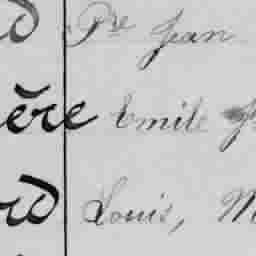 d Pre Jean
ère Emile J
rd Louis, M